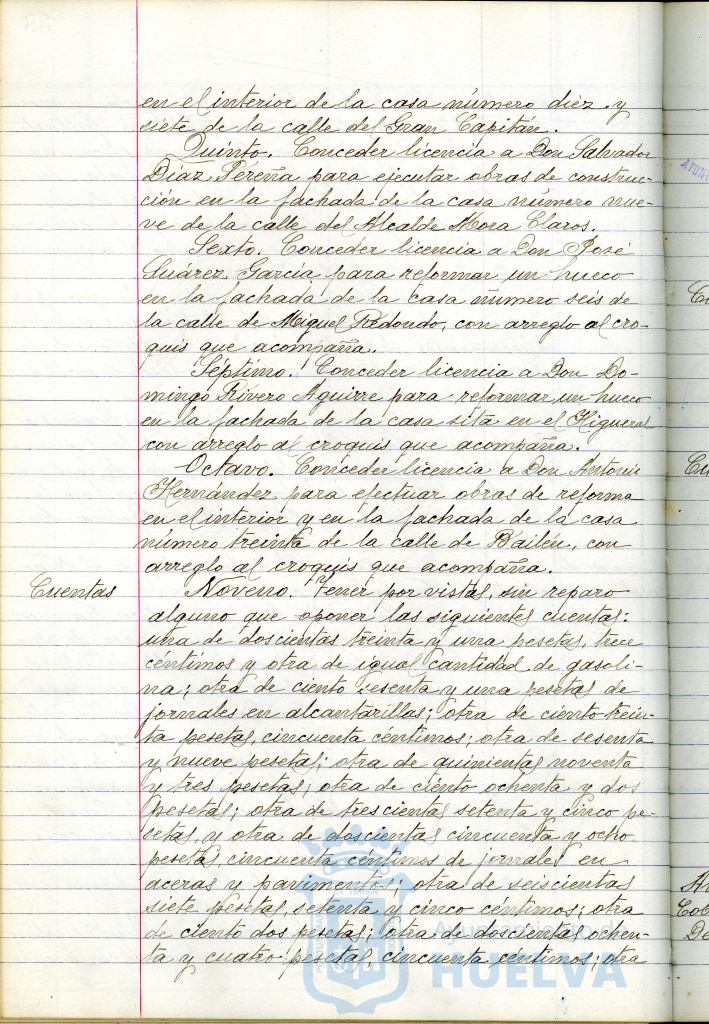 en el interior de la casa número diez y
siete de la calle del Gran Capitán.
Quinto. Conceder licencia a Don Salvador
Díaz Pereña para ejecutar obras de construc-
ción en la fachada de la casa número nue-
ve de la calle del Alcalde Mora Claros.
Sexto. Conceder licencia a Don José
Suárez García para reformar un hueco
en la fachada de la casa número seis de
la calle de Miguel Redondo, con arreglo al cro-
quis que acompaña.
Séptimo. Conceder licencia a Don Do-
mingo Rivero Aguirre para reformar un hueco
en la fachada de la casa sita en el Higueral
con arreglo al croquis que acompaña.
Octavo. Conceder licencia a Don Antonio
Hernández para efectuar obras de reforma
en el interior y en la fachada de la casa
número treinta de la calle de Bailén, con
arreglo al croquis que acompaña.
Cuentas Noveno. Tener por vistas, sin reparo
alguno que oponer las siguientes cuentas:
una de doscientas treinta y una pesetas, trece
céntimos y otra de igual cantidad de gasoli-
na; otra de ciento sesenta y una pesetas de
jornales en alcantarillas; otra de ciento trein-
ta pesetas, cincuenta céntimos; otra de sesenta
y nueve pesetas; otra de quinientas noventa
y tres pesetas; otra de ciento ochenta y dos
pesetas; otra de trescientas setenta y cinco pe-
setas, y otra de doscientas cincuenta y ocho
pesetas, cincuenta céntimos de jornales en
aceras y pavimentos; otra de seiscientas
siete pesetas, setenta y cinco céntimos; otra
de ciento dos pesetas; otra de doscientas ochen-
ta y cuatro pesetas, cincuenta céntimos; otra
Ayuntamiento de
HUELVA